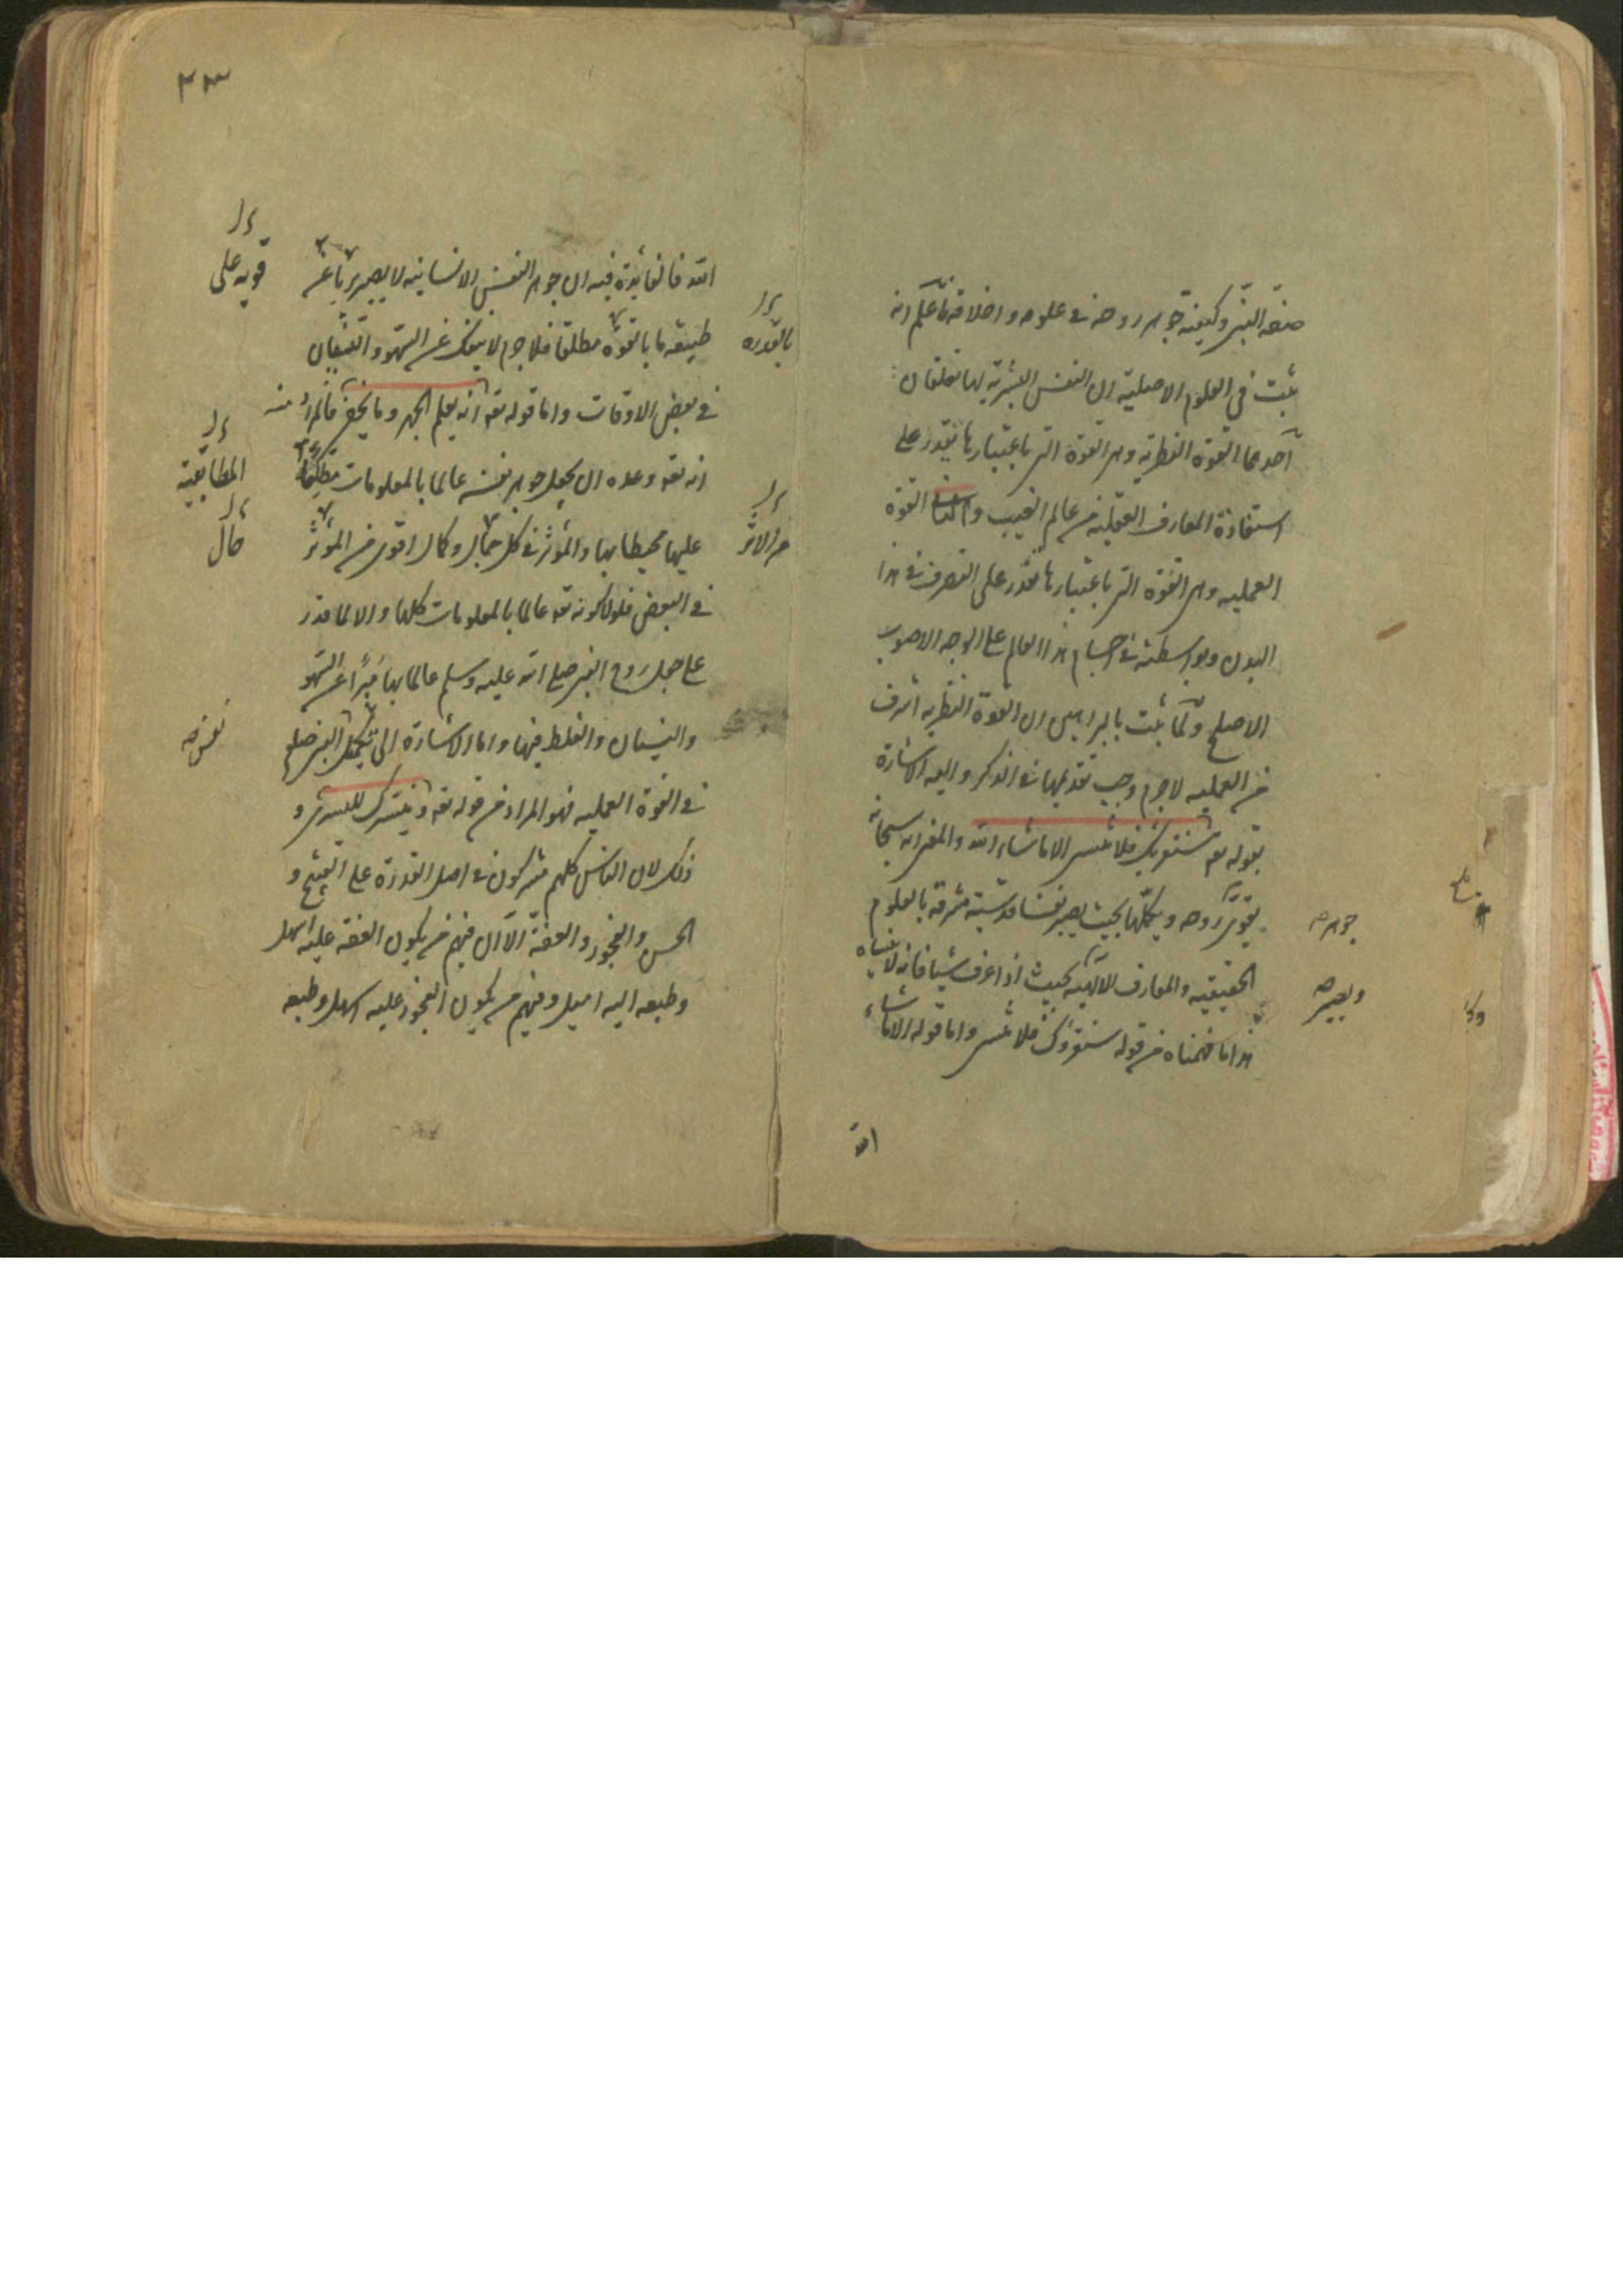 صفة النبي وكيفية جوهر روحه في علومه واخلاقه فاعلم انه
ثبت في العلوم الاصلية ان النفس البشرية لها تعلقان
احدهما القوة النظرية وهي القوة التي باعتبارها يقدر على
استفادة المعارف العقلية من عالم الغيب والثانية القوة
العمليه وهي القوة التي باعتبارها تقدر على التصرف في هذا
البدن وبواسطته في اجسام هذا العالم على الوجه الاصوب
الاصلح ولما ثبت بالبراهين ان القوة النظريه اشرف
من العمليه لاجرم وجب تقديمها في الذكر واليه الاشارة
بقوله تعم سنقرئك فلا تنسى الا ما شاء الله والمعنى انه سبحانه
يقوي روحه ويكملها بحيث يصير نفسا قدسية مشرقة بالعلوم
جوهره
الحقيقيه والمعارف الالهيه بحيث اذا عرف شيئا فانه لا ينساه
ويصيره
هذا ما فهمناه من قوله سنقرؤك فلا تنسى واما قوله الا ما شاء
الله
٢٣
الله فالفايدة فيه ان جوهر النفس الانسانيه لا يصير
قويه على
طبيعه ما بالقوة مطلقا فلا جرم لا ينفك عن السهو والنسيان
بالقدره
في بعض الاوقات واما قوله تعه انه يعلم الجهر وما يخفى فالمراد منه
انه تعه وعده ان يجعل جوهر نفسه عالما بالمعلومات
المطابقية
عليها محيطا بها والمؤثر في كل جمال وكمال اقوى من المؤثر
من الاثر
حال
في البعض فلولا كونه تعه عالما بالمعلومات كلها والا لما قدر
على جعل روح النبي صلى الله عليه وسلم عالما بها مبرأ عن السهو
والنسيان والغلط فيها واما الاشارة الى تكميل النبي صلع
في القوة العمليه فهو المراد من قوله تعه ونيسرك لليسرى و
ذلك لان الناس كلهم مشتركون في اصل القدرة على القبيح و
الحسن والفجور والعفة الا ان فيهم من يكون العفة عليه اسهل
وطبعه اليه اميل وفيهم من يكون الفجور عليه اسهل وطبعه